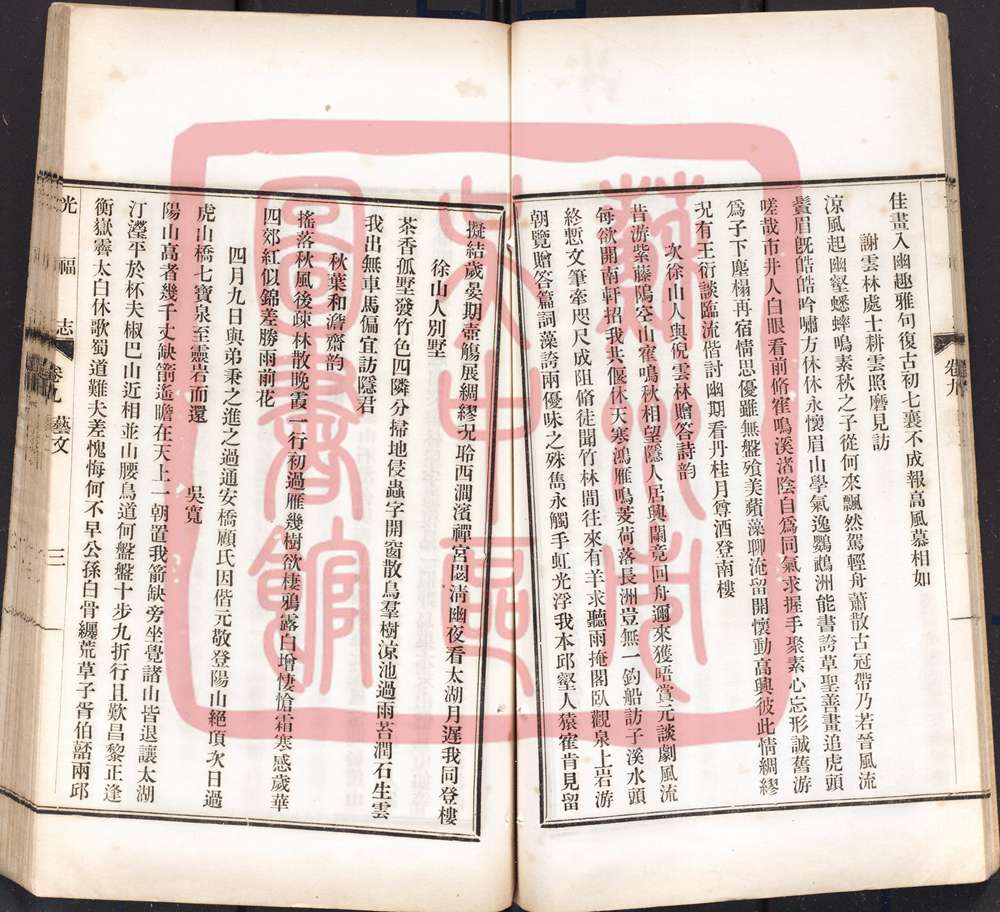 佳畫入幽趣雅句復古初七襄不成報高風慕相如
謝雲林處士耕雲照磨見訪
涼風起幽壑蟋蟀鳴素秋之子從何來飄然駕輕舟蕭散古冠帶乃若晉風流
鬢眉旣皓皓吟嘯方休休永懷眉山學氣逸鸚鵡洲能書誇草聖善畫追虎頭
嗟哉市井人白眼看前脩寉鳴溪渚陰自爲同氣求握手聚素心忘形誠舊游
爲子下塵榻再宿情思優雖無盤飱美蘋藻聊淹留開懷動高興彼此情綢繆
況有王衍談臨流偕討幽期看丹桂月尊酒登南樓
次徐山人與倪雲林贈答詩韵
昔游紫藤隖空山寉鳴秋相望隱人居興闌竟回舟邇來獲晤賞元談劇風流
每欲開南軒招我共偃休天寒鴻雁鳴菱荷落長洲豈無一釣船訪子溪水頭
終慙文筆牽咫尺成阻脩徒聞竹林間往來有羊求聽雨掩閣臥觀泉上岩游
朝覽贈答篇詞藻誇兩優味之殊雋永觸手虹光浮我本邱壑人猿寉肯見留
擬結歲晏期壺觴展綢繆況聆西澗濱禪宮閟淸幽夜看太湖月遲我同登樓
徐山人別墅
茶香孤墅發竹色四隣分掃地侵蟲字開窗散鳥羣樹涼池過雨苔潤石生雲
我出無車馬偏宜訪隱君
秋葉和澹齋韵
搖落秋風後疎林散晚霞一行初過雁幾樹欲棲鴉露白增悽愴霜寒感歲華
四郊紅似錦差勝雨前花
四月九日與弟秉之進之過通安橋顧氏因偕元敬登陽山絕頂次日過
虎山橋七寶泉至靈岩而還 吳寬
陽山高者幾千丈缺箭遙瞻在天上一朝置我箭缺旁坐覺諸山皆退讓太湖
汀瀅平於杯夫椒巴山近相並山腰鳥道何盤盤十步九折行且歎昌黎正逢
衡嶽霽太白休歌蜀道難夫差愧悔何不早公孫白骨纏荒草子胥伯嚭兩邱
光福志
卷九 藝文
三
卷九
蘇州大學圖書館